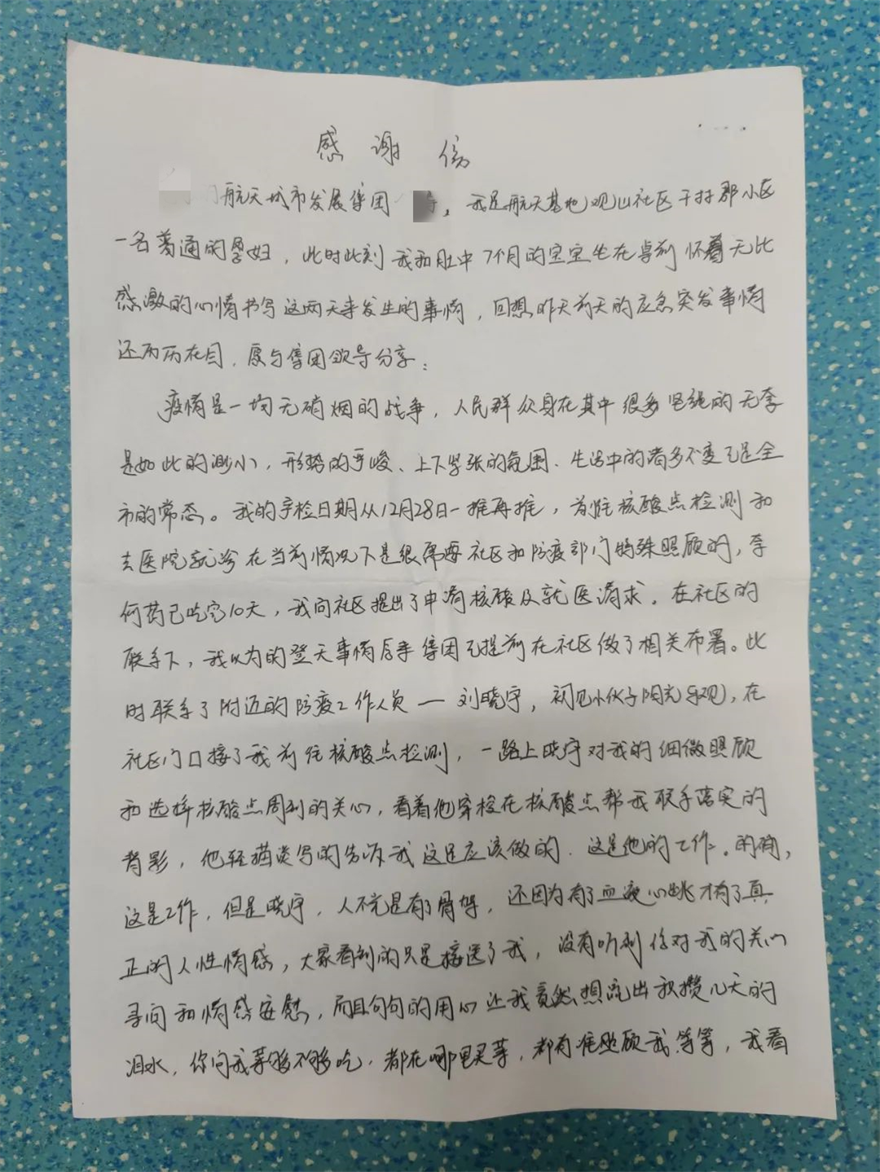 感谢信
航天城市发展集团 ，我是航天基地观山社区千村郡小区
一名普通的孕妇，此时此刻我和肚中7个月的宝宝坐在桌前怀着无比
感激的心情书写这两天来发生的事情，回想昨天前天的应急突发事情
还历历在目，愿与集团领导分享：
疫情是一场无硝烟的战争，人民群众身在其中很多坚强的无奈
是如此的渺小，形势的严峻、上下紧张的氛围、生活中的诸多不变已是全
市的常态。我的孕检日期从12月28日一推再推，前往核酸点检测和
去医院就诊在当前情况下是很需要社区和防疫部门特殊照顾的，奈
何药已吃完10天，我向社区提出了申请核酸及就医请求。在社区的
联系下，我以为的登天事情后来集团已提前在社区做了相关布署。此
时联系了附近的防疫工作人员—刘晓宇，初见小伙子阳光乐观，在
社区门口接了我前往核酸点检测，一路上晓宇对我的细微照顾
和选择核酸点周到的关心，看着他穿梭在核酸点帮我联系落实的
背影，他轻描淡写的告诉我这是应该做的，这是他的工作。的确，
这是工作，但是晓宇，人不光是有了骨架，还因为有了血液心跳才有了真
正的人性情感，大家看到的只是接送了我，没有听到你对我的关心
寻问和情感安慰，而且句句的用心让我竟然想流出积攒几天的
泪水，你问我菜够不够吃，都在哪里买菜，都有谁照顾我等等，我看